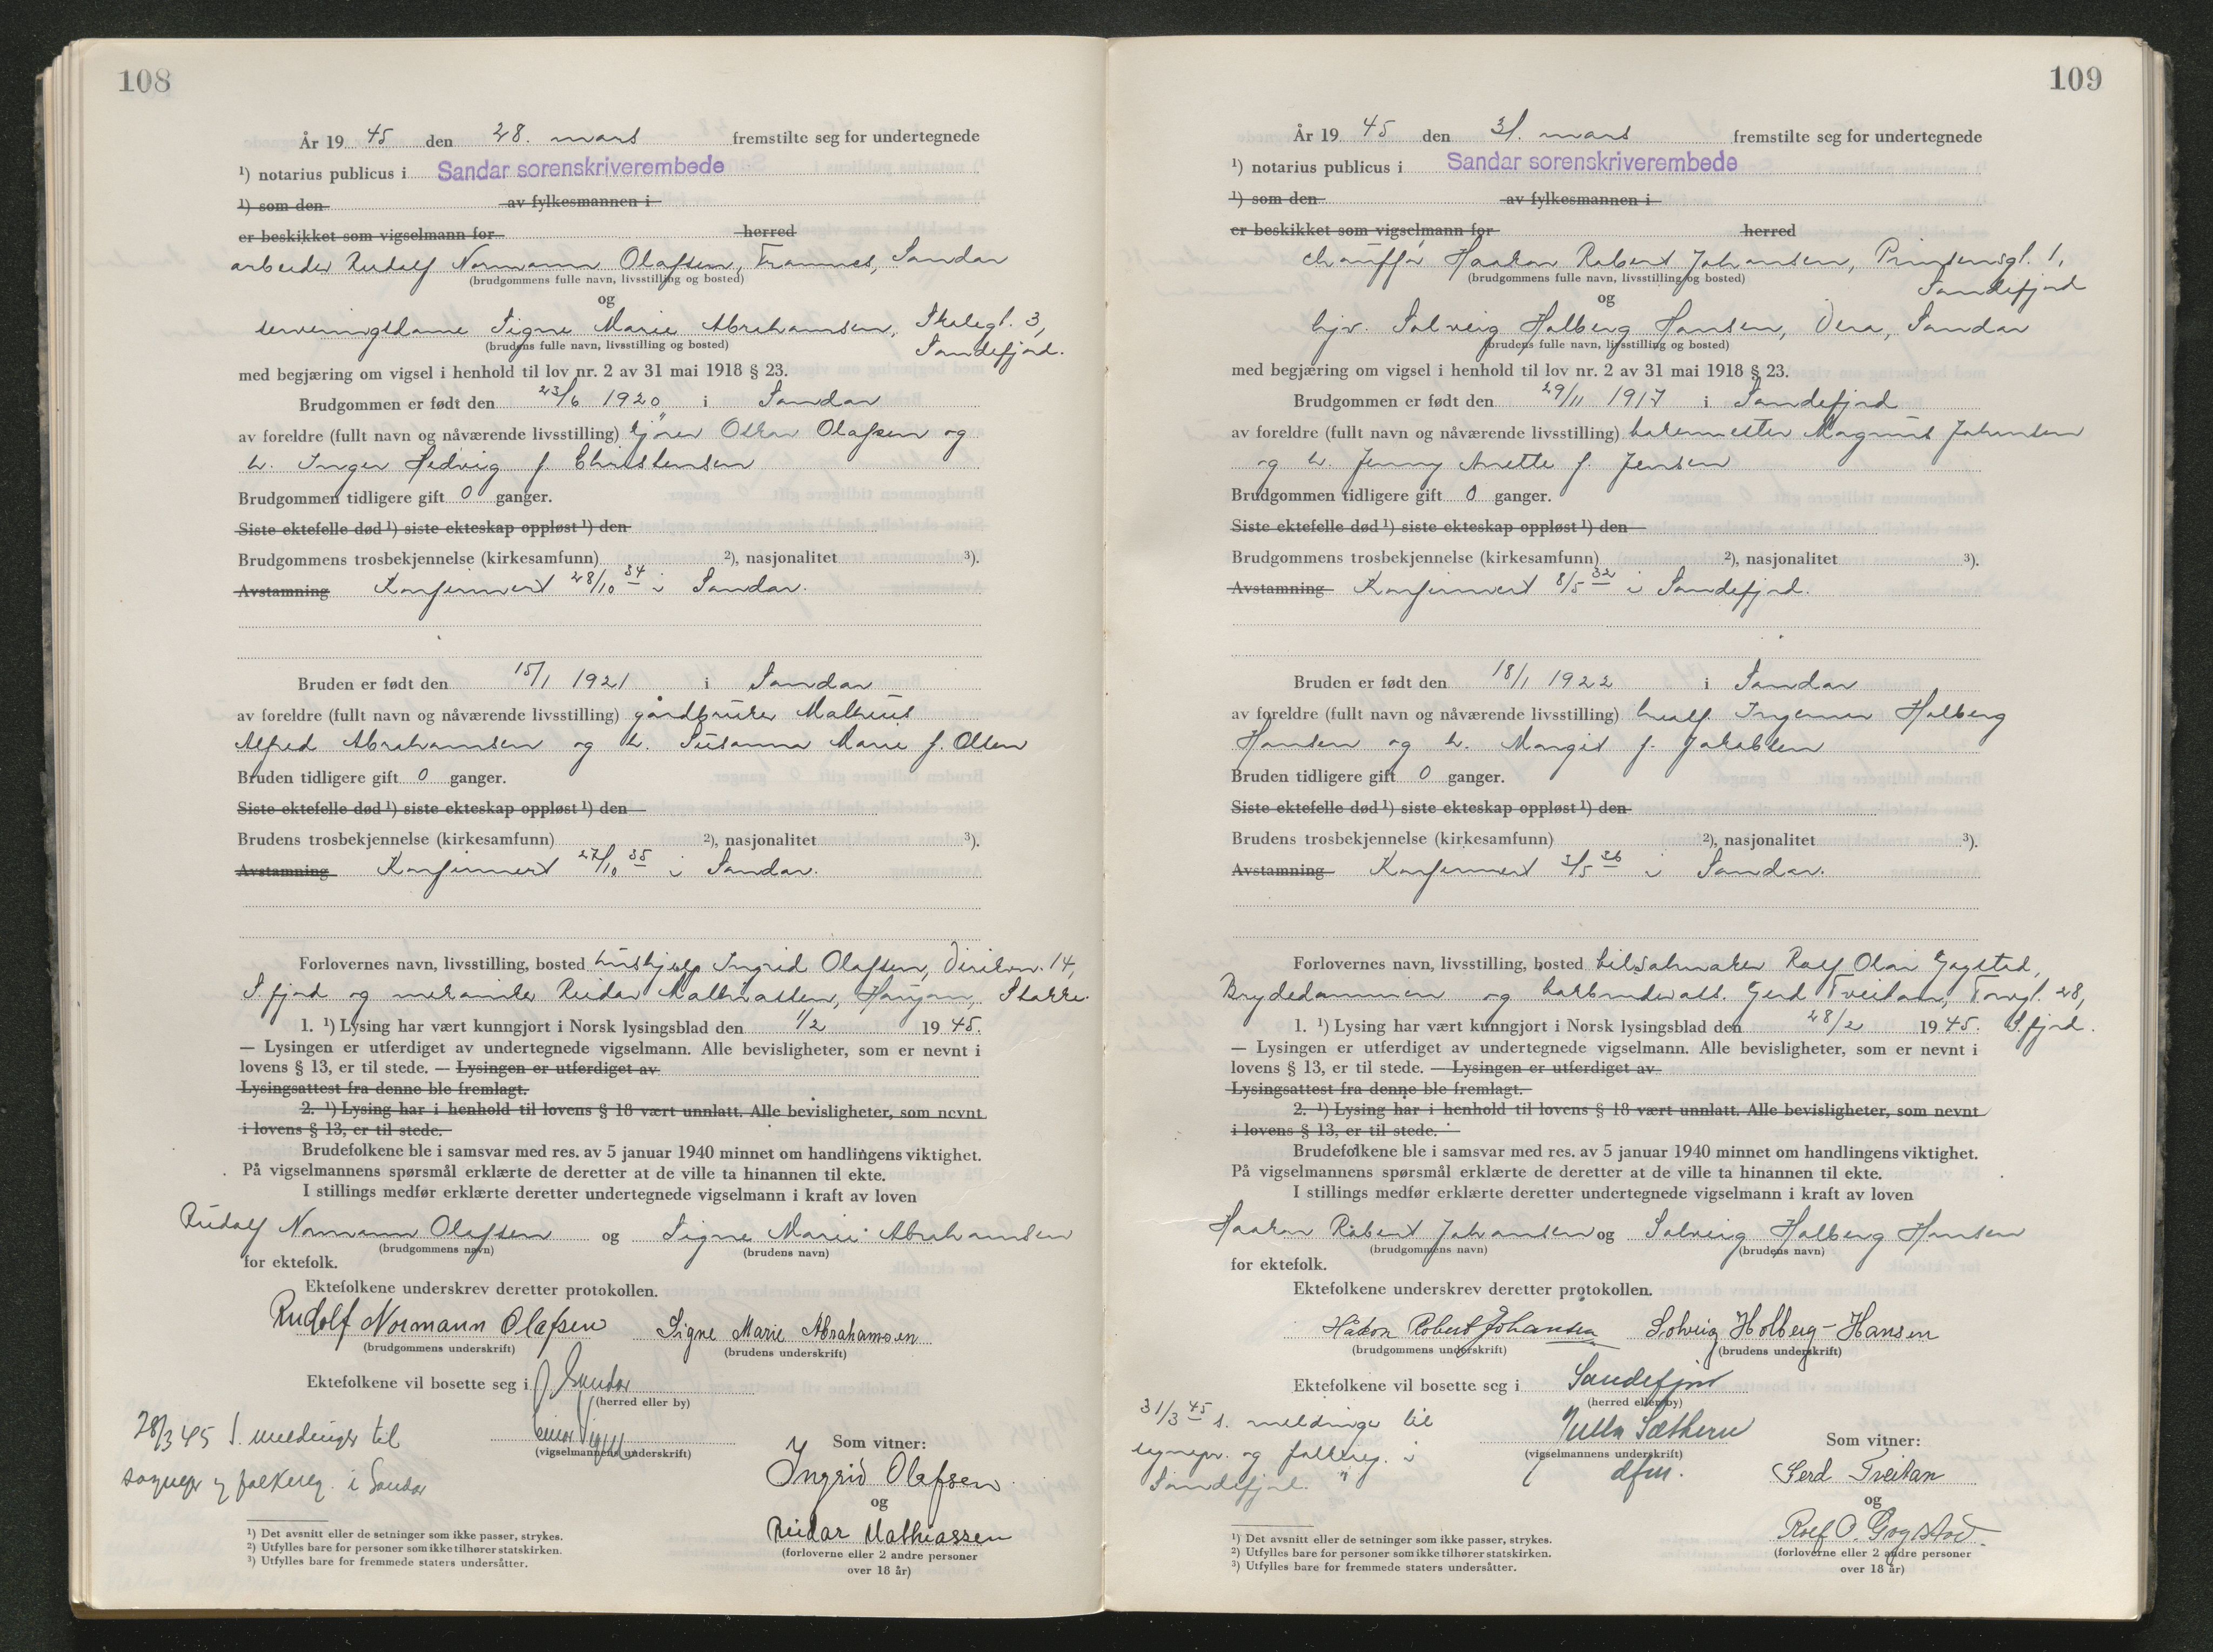 108
År 19 45 den 28. mars fremstilte seg for undertegnede
¹) notarius publicus i Sandar sorenskriverembede
¹) som den av fylkesmannen i
er beskikket som vigselmann for herred
arbeider Rudolf Normann Olafsen, Framnes, Sandar
(brudgommens fulle navn, livsstilling og bosted)
og
serveringsdame Signe Marie Abrahamsen, Skolegt. 3,
(brudens fulle navn, livsstilling og bosted) Sandefjord.
med begjæring om vigsel i henhold til lov nr. 2 av 31 mai 1918 § 23.
Brudgommen er født den 23/6 1920 i Sandar
av foreldre (fullt navn og nåværende livsstilling) Oskar Olafsen og
h. Inger Hedvig f. Christensen
Brudgommen tidligere gift 0 ganger.
Siste ektefelle død ¹) siste ekteskap oppløst ¹) den
Brudgommens trosbekjennelse (kirkesamfunn) ²), nasjonalitet ³).
Avstamning Konfirmert 28/10 34 i Sandar.
Bruden er født den 15/1 1921 i Sandar
av foreldre (fullt navn og nåværende livsstilling) gårdbruker Mathius
Alfred Abrahamsen og h. Susanna Marie f. Olsen
Bruden tidligere gift 0 ganger.
Siste ektefelle død ¹) siste ekteskap oppløst ¹) den
Brudens trosbekjennelse (kirkesamfunn) ²), nasjonalitet ³).
Avstamning Konfirmert 27/10 35 i Sandar.
Forlovernes navn, livsstilling, bosted hushjelp Ingrid Olafsen, 14,
S.fjord og mekaniker Reidar Mathiassen, Haugan, Stokke.
1. ¹) Lysing har vært kunngjort i Norsk lysingsblad den 1/2 19 45.
— Lysingen er utferdiget av undertegnede vigselmann. Alle bevisligheter, som er nevnt i
lovens § 13, er til stede. — Lysingen er utferdiget av
Lysingsattest fra denne ble fremlagt.
2. ¹) Lysing har i henhold til lovens § 18 vært unnlatt. Alle bevisligheter, som nevnt
i lovens § 13, er til stede.
Brudefolkene ble i samsvar med res. av 5 januar 1940 minnet om handlingens viktighet.
På vigselmannens spørsmål erklærte de deretter at de ville ta hinannen til ekte.
I stillings medfør erklærte deretter undertegnede vigselmann i kraft av loven
Rudolf Normann Olafsen og Signe Marie Abrahamsen
(brudgommens navn) (brudens navn)
for ektefolk.
Ektefolkene underskrev deretter protokollen.
Rudolf Normann Olafsen Signe Marie Abrahamsen
(brudgommens underskrift) (brudens underskrift)
Ektefolkene vil bosette seg i Sandar
(herred eller by)
28/3 45 s. meldinger til
(vigselmannens underskrift) Som vitner:
sognepr og folkereg. i Sandar
Ingrid Olafsen
og
Reidar Mathiassen
(forloverne eller 2 andre personer
over 18 år)
¹) Det avsnitt eller de setninger som ikke passer, strykes.
²) Utfylles bare for personer som ikke tilhører statskirken.
³) Utfylles bare for fremmede staters undersåtter.
109
År 19 45 den 31. mars fremstilte seg for undertegnede
¹) notarius publicus i Sandar sorenskriverembede
¹) som den av fylkesmannen i
er beskikket som vigselmann for herred
chauffør Haakon Robert Johansen, Prinsensgt. 1,
(brudgommens fulle navn, livsstilling og bosted) Sandefjord
og
hjv. Solveig Holberg Hansen, Vera, Sandar
(brudens fulle navn, livsstilling og bosted)
med begjæring om vigsel i henhold til lov nr. 2 av 31 mai 1918 § 23.
Brudgommen er født den 29/11 1917 i Sandefjord
av foreldre (fullt navn og nåværende livsstilling) bakermester Magnus Johansen
og h. Jenny Anette f. Jensen
Brudgommen tidligere gift 0 ganger.
Siste ektefelle død ¹) siste ekteskap oppløst ¹) den
Brudgommens trosbekjennelse (kirkesamfunn) ²), nasjonalitet ³).
Avstamning Konfirmert 8/5 32 i Sandefjord.
Bruden er født den 18/1 1922 i Sandar
av foreldre (fullt navn og nåværende livsstilling) hvalf. Ingemar Holberg
Hansen og h. Margit f. Jakobsen
Bruden tidligere gift 0 ganger.
Siste ektefelle død ¹) siste ekteskap oppløst ¹) den
Brudens trosbekjennelse (kirkesamfunn) ²), nasjonalitet ³).
Avstamning Konfirmert 3/5 36 i Sandar.
Forlovernes navn, livsstilling, bosted bilsalmaker Rolf Olai Gogstad,
Brydedammen og Gerd Tveitan, Torvgt. 28,
1. ¹) Lysing har vært kunngjort i Norsk lysingsblad den 28/2 19 45. S.fjord.
— Lysingen er utferdiget av undertegnede vigselmann. Alle bevisligheter, som er nevnt i
lovens § 13, er til stede. — Lysingen er utferdiget av
Lysingsattest fra denne ble fremlagt.
2. ¹) Lysing har i henhold til lovens § 18 vært unnlatt. Alle bevisligheter, som nevnt
i lovens § 13, er til stede.
Brudefolkene ble i samsvar med res. av 5 januar 1940 minnet om handlingens viktighet.
På vigselmannens spørsmål erklærte de deretter at de ville ta hinannen til ekte.
I stillings medfør erklærte deretter undertegnede vigselmann i kraft av loven
Haakon Robert Johansen og Solveig Holberg Hansen
(brudgommens navn) (brudens navn)
for ektefolk.
Ektefolkene underskrev deretter protokollen.
Håkon Robert Johansen Solveig Holberg-Hansen
(brudgommens underskrift) (brudens underskrift)
Ektefolkene vil bosette seg i Sandefjord
(herred eller by)
31/3 45 s. meldinger til
sognepr. og folkereg. i
Sandefjord.
(vigselmannens underskrift) Som vitner:
dfm.
Gerd Tveitan
og
Rolf O. Gogstad
(forloverne eller 2 andre personer
over 18 år)
¹) Det avsnitt eller de setninger som ikke passer, strykes.
²) Utfylles bare for personer som ikke tilhører statskirken.
³) Utfylles bare for fremmede staters undersåtter.